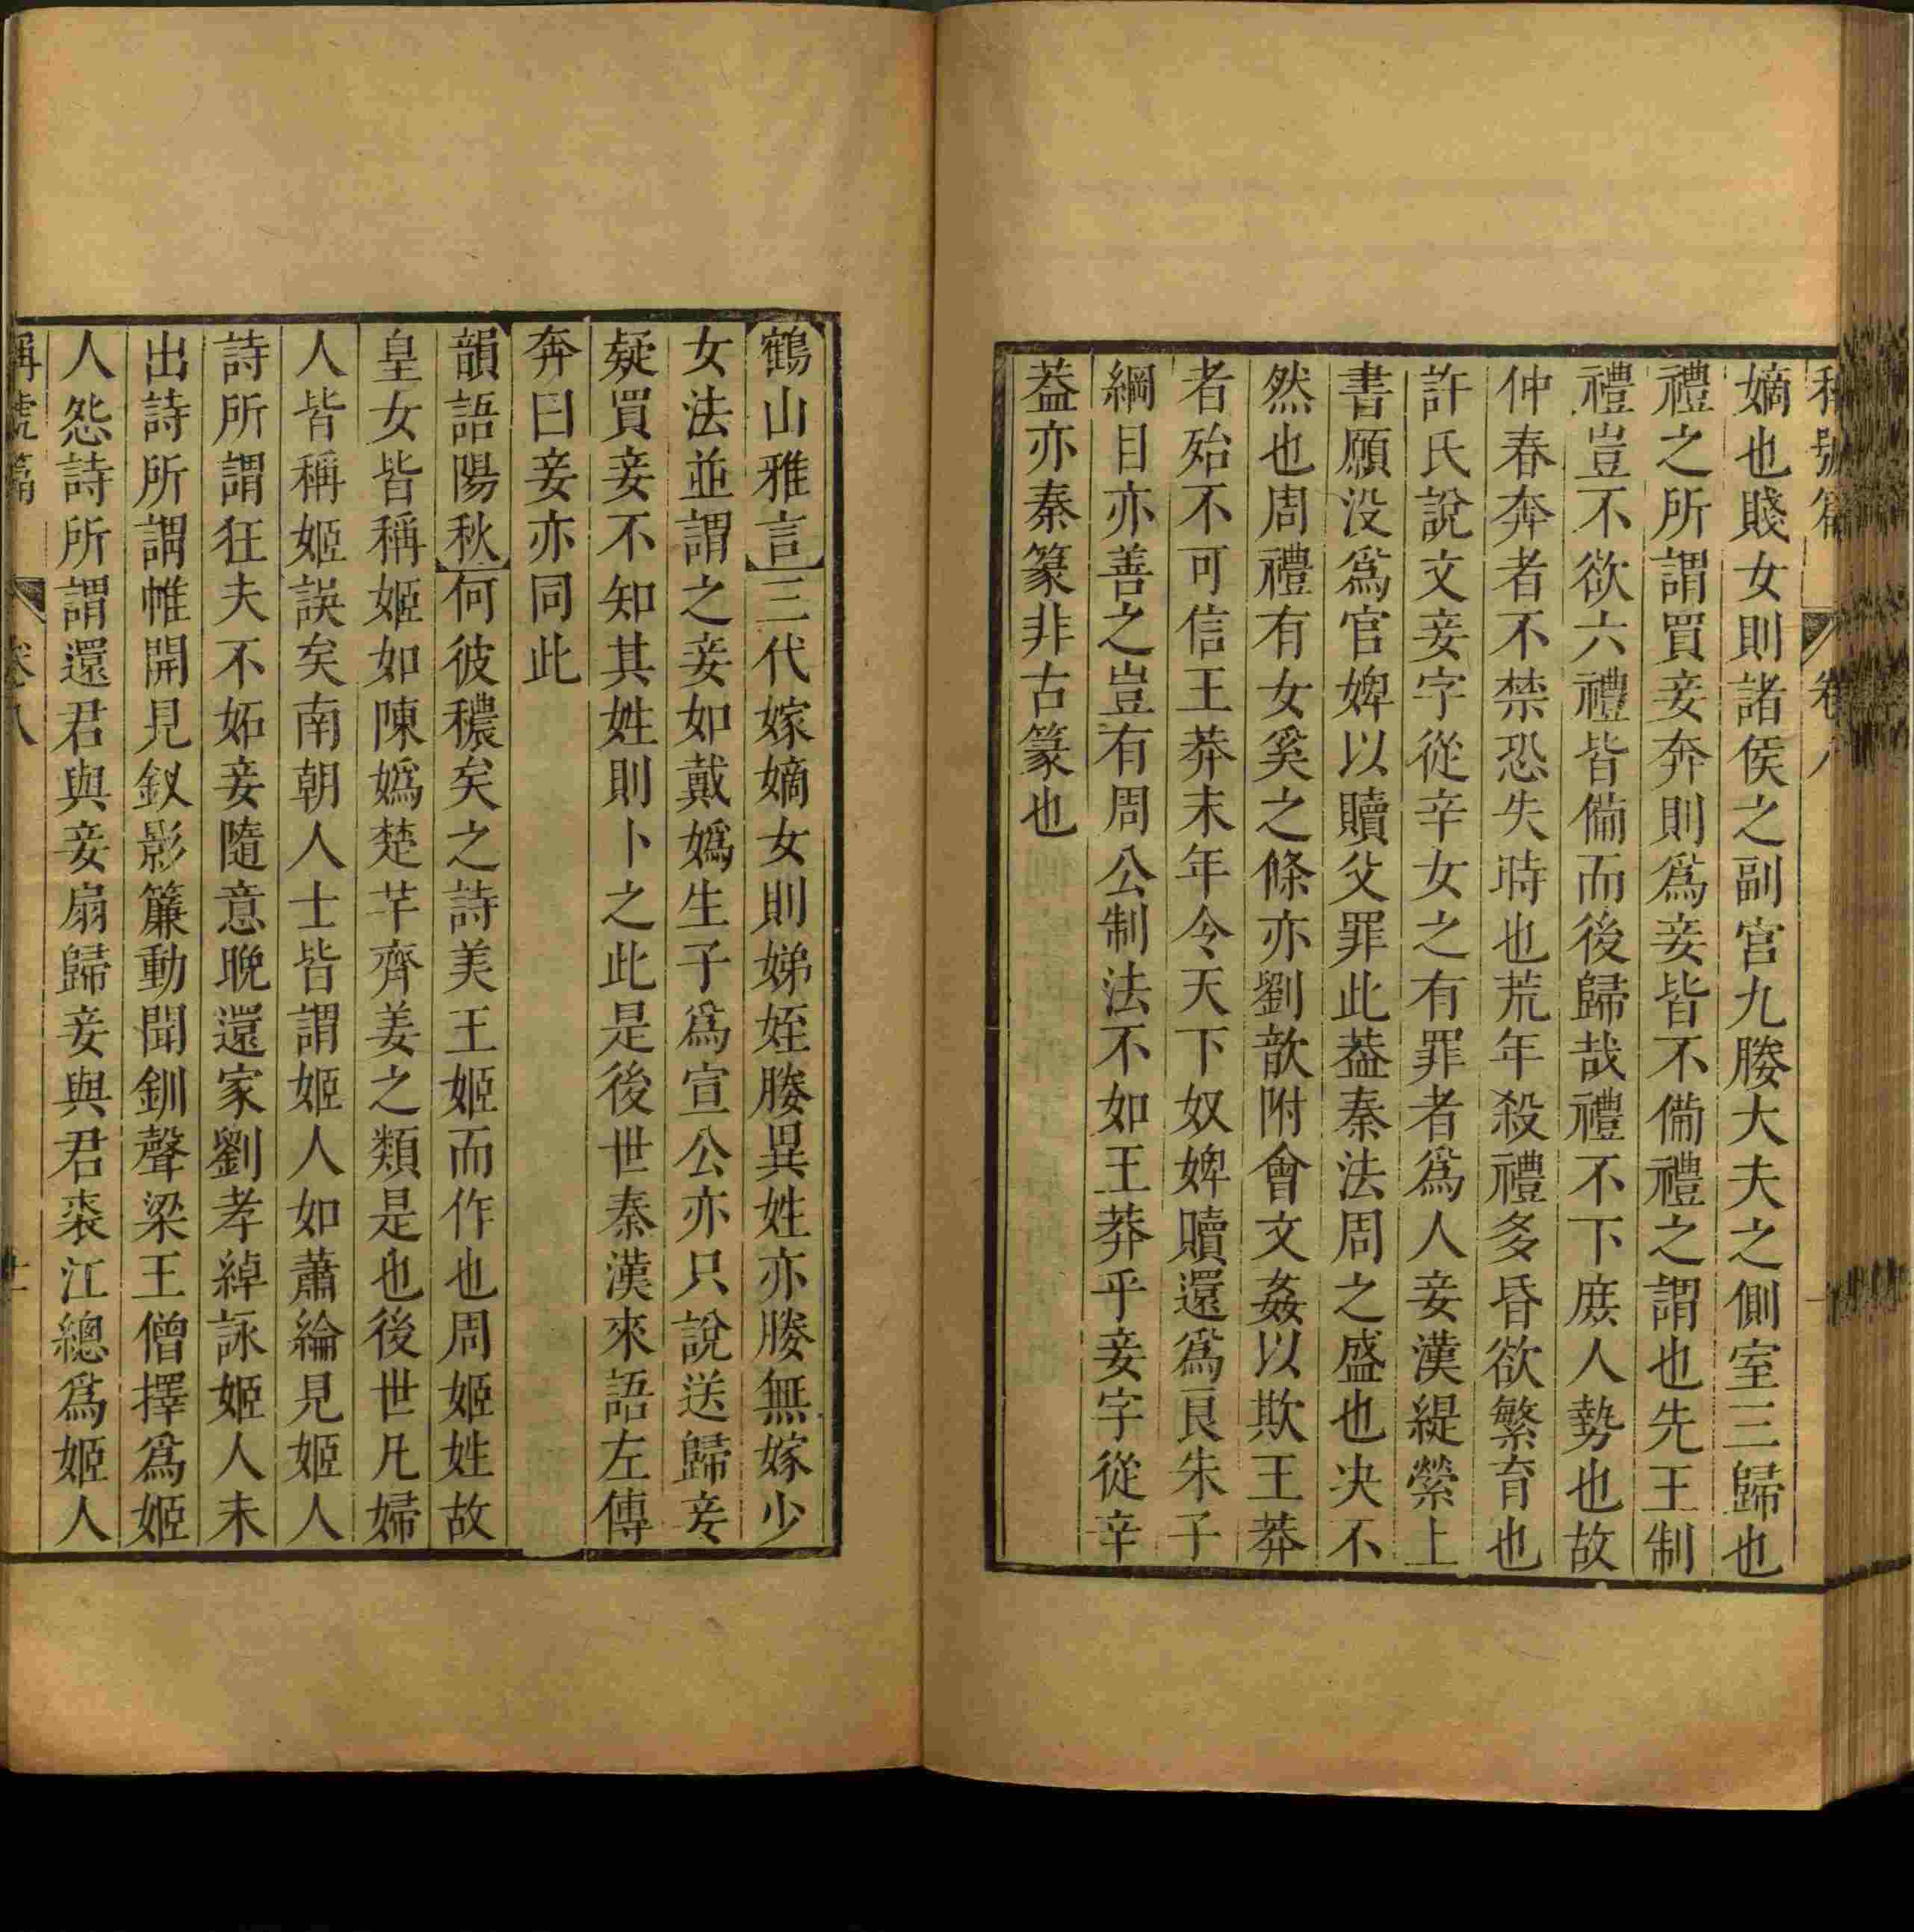 稱號篇 卷八
嫡也賤女則諸侯之副宮九媵大夫之側室三歸也
禮之所謂買妾奔則爲妾皆不備禮之謂也先王制
禮豈不欲六禮皆備而後歸哉禮不下庶人勢也故
仲春奔者不禁恐失時也荒年殺禮多昏欲繁育也
許氏說文妾字從辛女之有罪者爲人妾漢緹縈上
書願没爲官婢以贖父罪此葢秦法周之盛也决不
然也周禮有女奚之條亦劉歆附會文姦以欺王莽
者殆不可信王莽末年令天下奴婢贖還爲良朱子
綱目亦善之豈有周公制法不如王莽乎妾字從辛
葢亦秦篆非古篆也
鶴山雅言三代嫁嫡女則娣姪媵異姓亦媵無嫁少
女法並謂之妾如戴嬀生子爲宣公亦只說送歸妾
疑買妾不知其姓則卜之此是後世秦漢來語左傳
奔曰妾亦同此
韻語陽秋何彼穠矣之詩美王姬而作也周姬姓故
皇女皆稱姬如陳嬀楚芊齊姜之類是也後世凡婦
人皆稱姬誤矣南朝人士皆謂姬人如蕭綸見姬人
詩所謂狂夫不妬妾隨意晚還家劉孝綽詠姬人未
出詩所謂帷開見釵影簾動聞釧聲梁王僧擇爲姬
人怨詩所謂還君與妾扇歸妾與君裘江總爲姬人
稱號篇 卷八